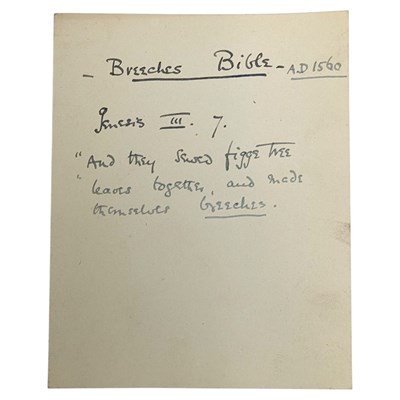 - Breeches Bible - A.D 1560
Genesis III. 7.
"And they sewed figge tree
"leaves together, and made
themselves breeches.